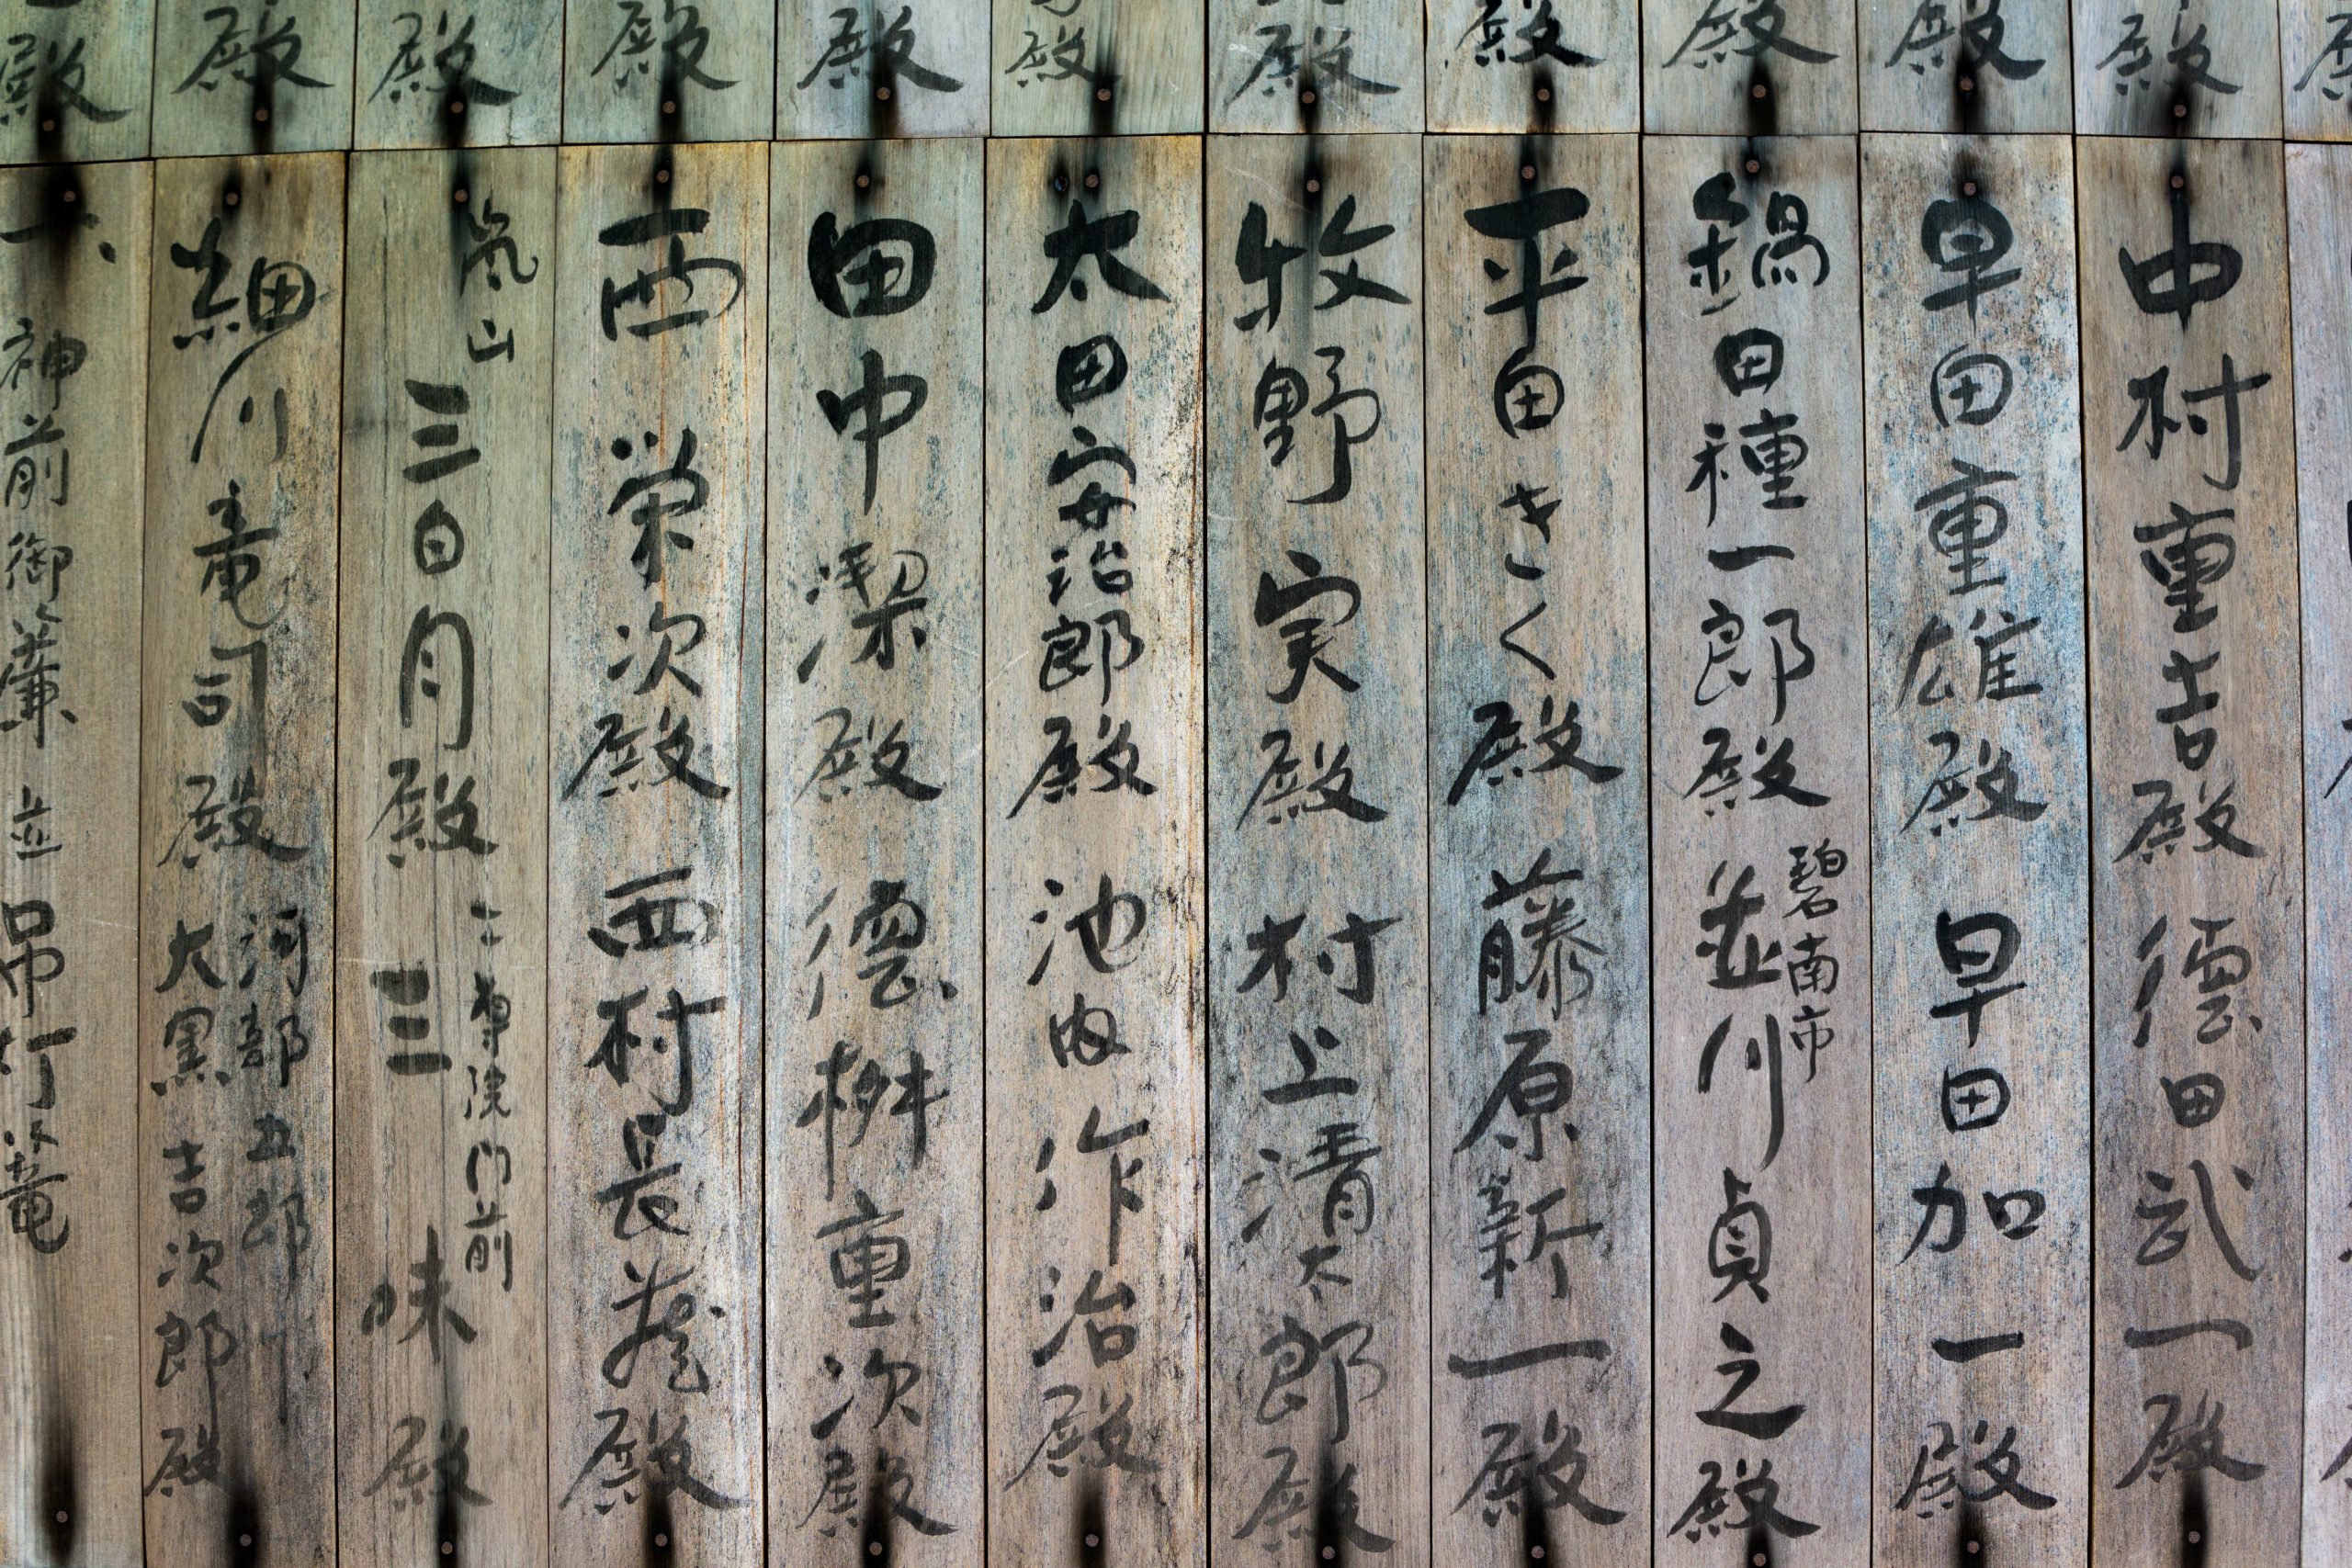 殿
殿
殿
殿
殿
殿
殿
殿
殿
殿
殿
中村重吉殿 徳田武一殿
早田重雄殿 早田加一殿
鍋田種一郎殿 碧南市 並川貞之殿
平田きく殿 藤原新一殿
牧野実殿 村上清太郎殿
太田安治郎殿 池内作治殿
田中潔殿 徳桝重次殿
西栄次殿 西村長蔵殿
嵐山 三日月殿 二尊院門前 三味殿
細川竜司殿 河部五郎 大黒吉次郎殿
一、神前御簾並吊灯篭